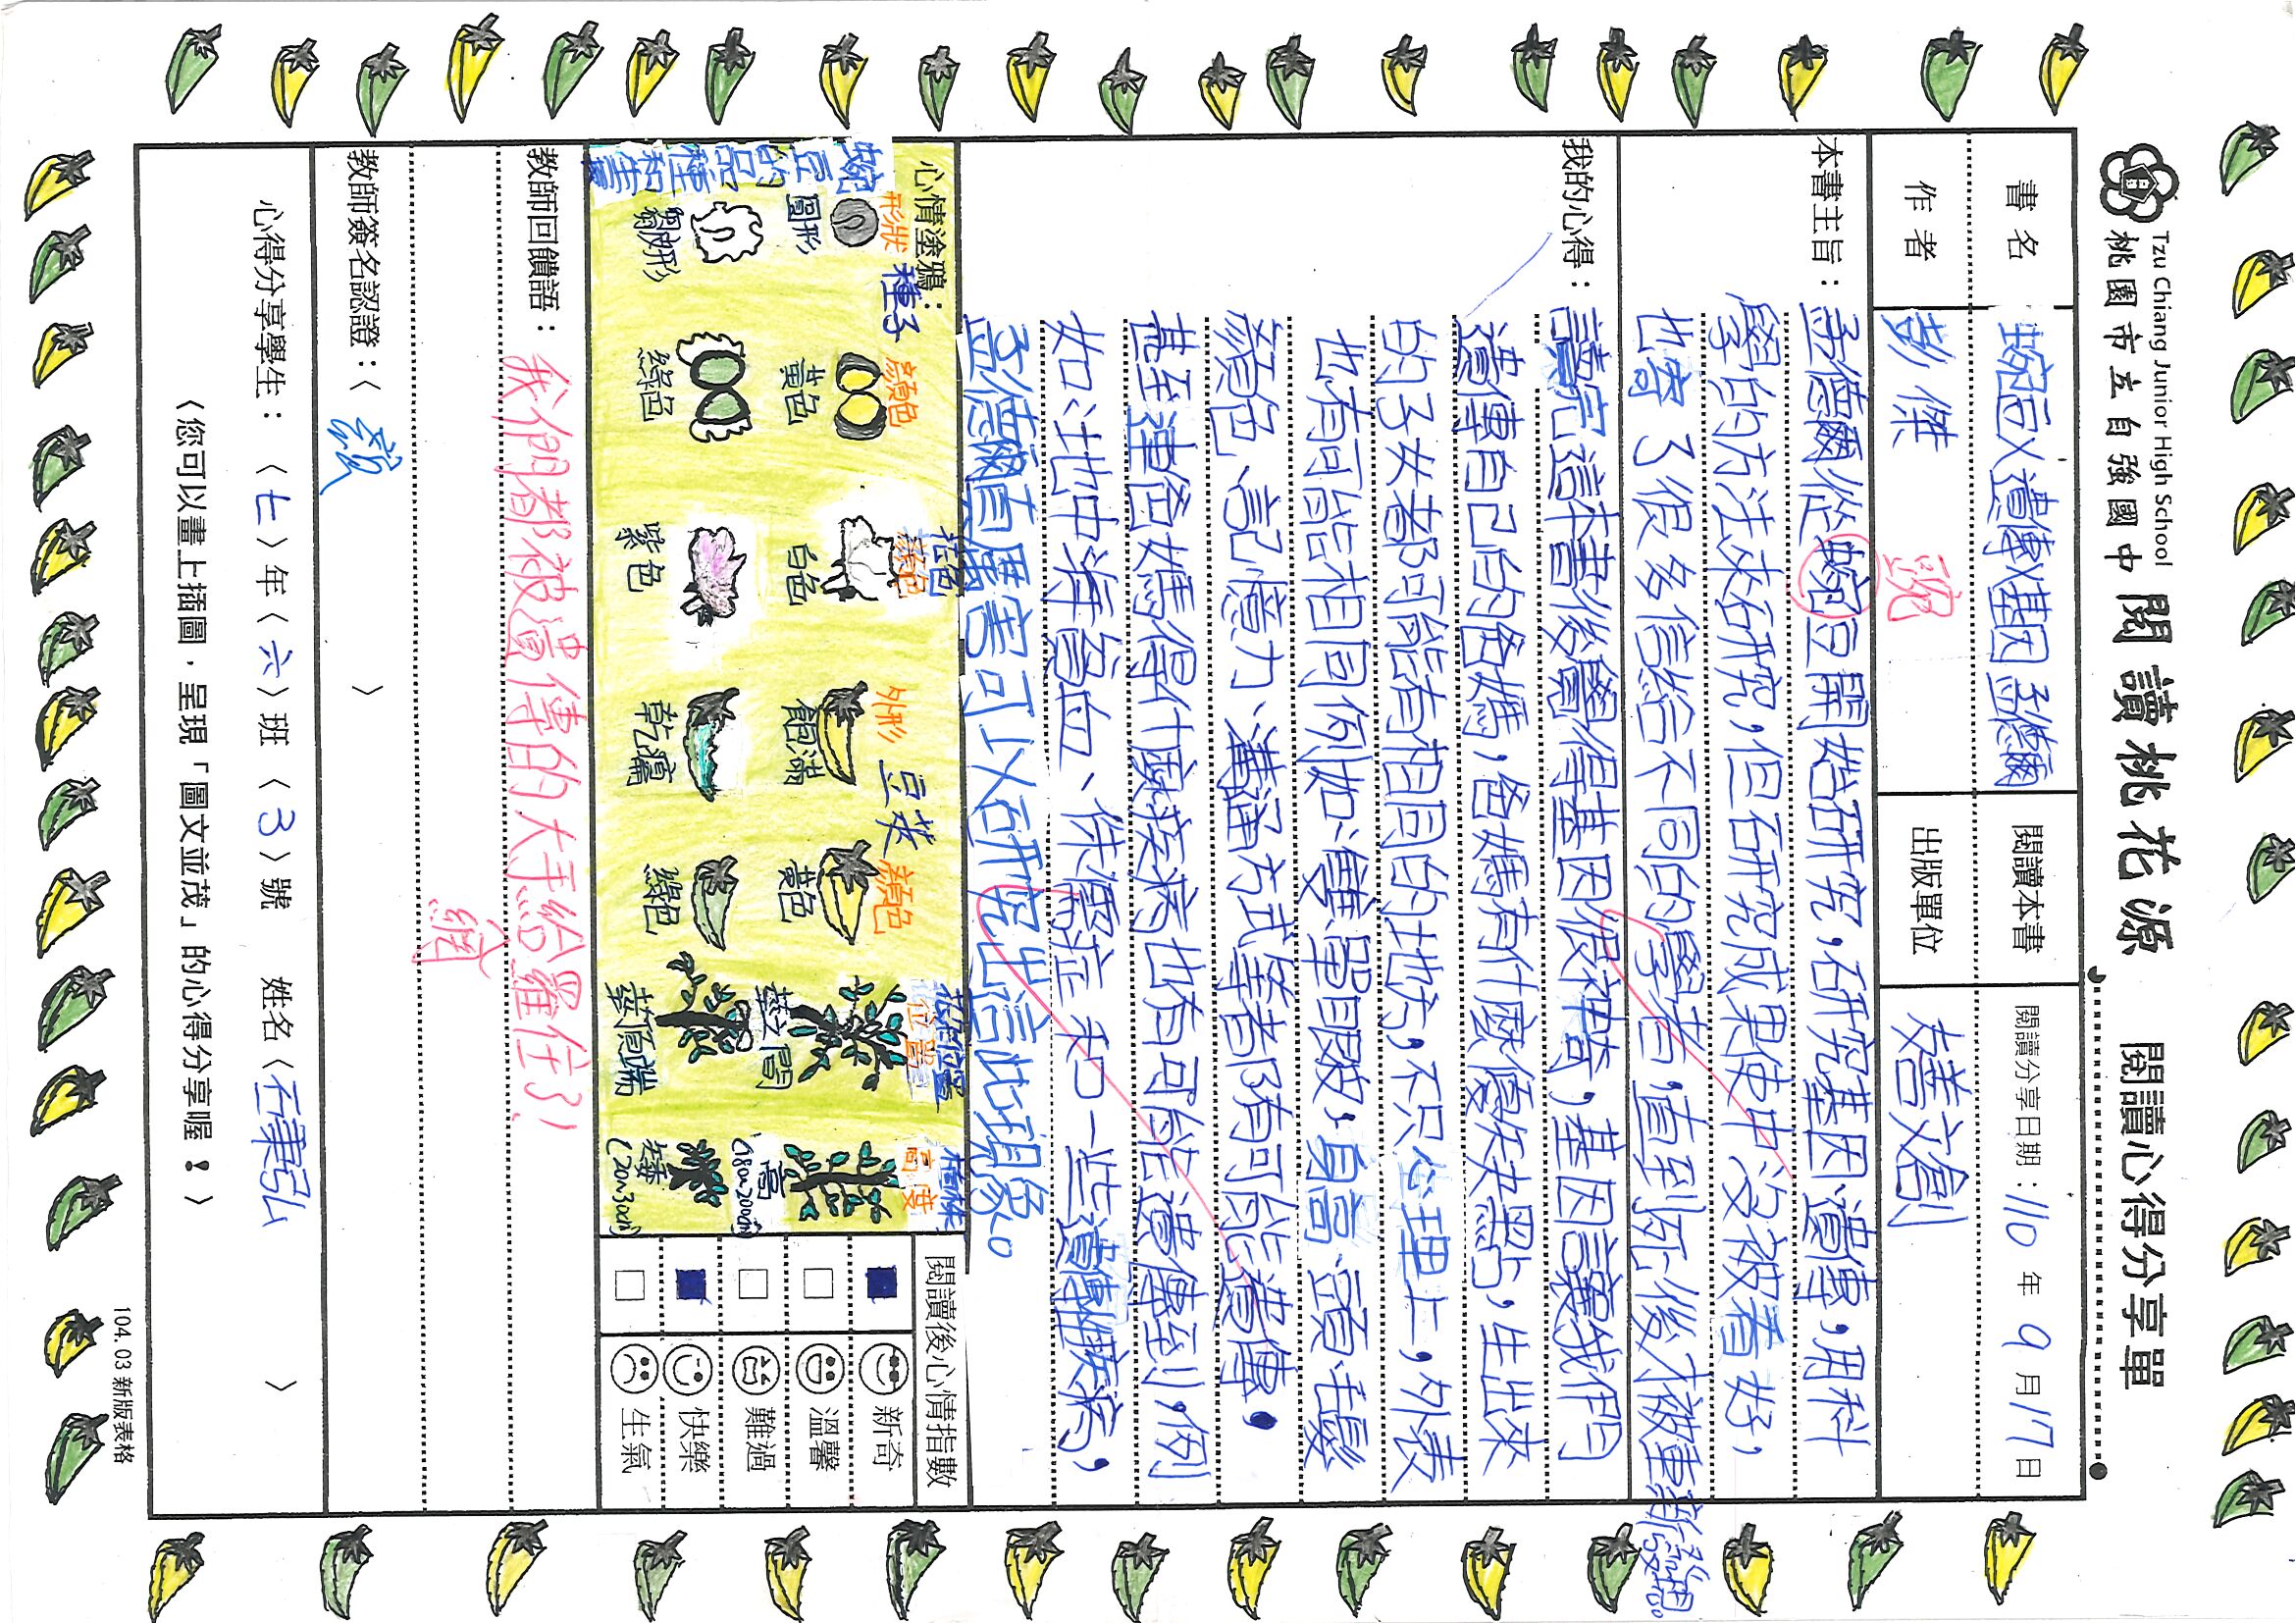 Tzu Chiang Junior High School
桃園市立自強國中 閱讀桃花源 閱讀心得分享單
書名 豌豆X遺傳X基因孟德爾 閱讀本書 閱讀分享日期:110年9月17日
作者 彭傑 出版單位 繕文創
豌
本書主旨:孟德爾從豌豆開始研究,研究基因遺傳,用科
學的方法來研究,但研究成果使中沒被看好,
也寄了很多信給不同的學者,直到死後才被重新發現。
我的心得:讀完這本書後覺得基因很神奇,基因讓我們
遺傳自己的爸媽,爸媽有什麼優缺點,生出來
的子女都可能有相同的地方,不只心理上,外表
也有可能相同例如:雙單眼皮,身高、頭髮
顏色、記憶力、溝通方式等者都有可能遺傳,
甚至連爸媽得什麼疾病也有可能遺傳到,例
如:地中海貧血、侏儒症和一些遺傳疾病,
孟德爾真厲害可以研究出這此現象。
心情塗鴉:
豌豆的品種和
種子
形狀 圓形 皺皮形
顏色 黃色 綠色
花色
顏色 白色 紫色
豆莢
外形 飽滿 乾癟
顏色 黃色 綠色
花位置
位置 莖之間 莖頂端
植株
高度 高(180~200cm) 矮(20~30cm)
閱讀後心情指數
新奇
溫馨
難過
快樂
生氣
教師回饋語:我們都被遺傳的大手給羅住了!
網
教師簽名認證:〈 〉
心得分享學生:〈七〉年〈六〉班〈3〉號 姓名〈石秉弘 〉
〈您可以畫上插圖,呈現「圖文並茂」的心得分享喔!〉
104.03新版表格